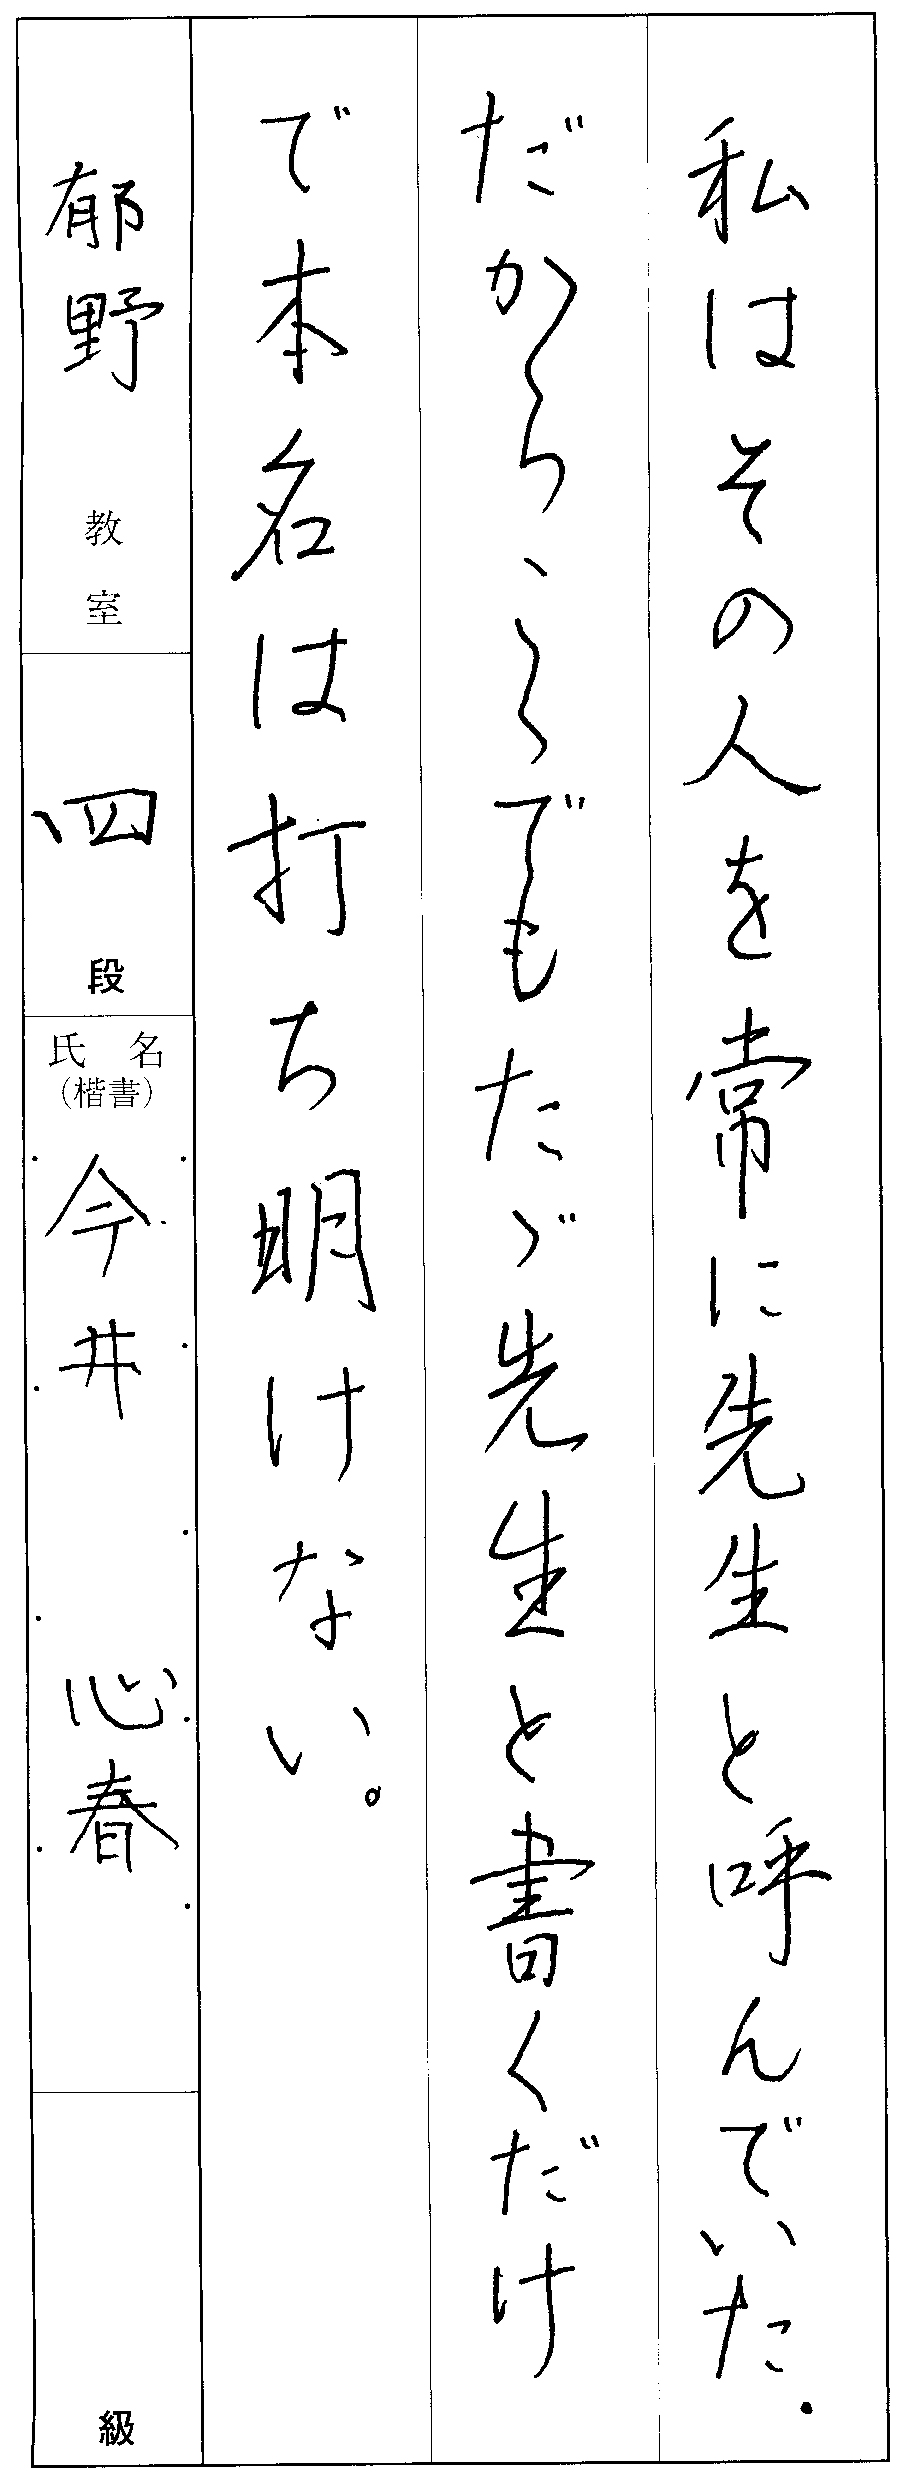 私はその人を常に先生と呼んでいた.
だから、こゝでもたゞ先生と書くだけ
で本名は打ち明けない。
郁野 教室
四 段
氏名
(楷書)
今井 心春
級